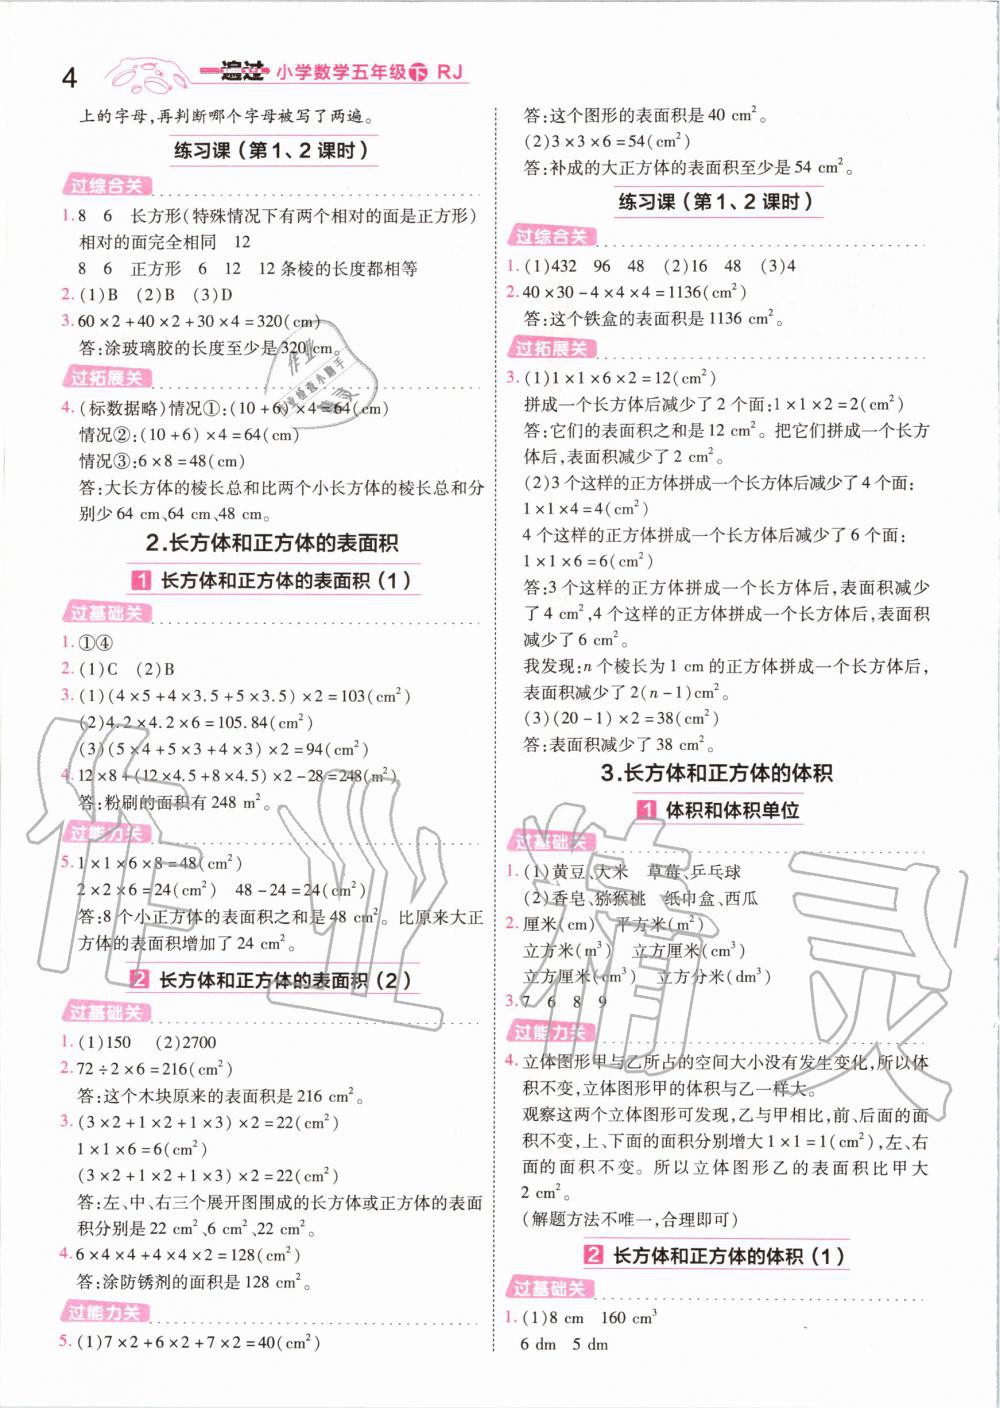 4
一遍过 小学数学五年级 下 RJ
上的字母,再判断哪个字母被写了两遍。
练习课(第1、2课时)
过综合关
1. 8 6 长方形(特殊情况下有两个相对的面是正方形)
相对的面完全相同 12
8 6 正方形 6 12 12条棱的长度都相等
2. (1)B (2)B (3)D
3. 60×2+40×2+30×4=320(cm)
答:涂玻璃胶的长度至少是320 cm。
过拓展关
4. (标数据略)情况①:(10+6)×4=64(cm)
情况②:(10+6)×4=64(cm)
情况③:6×8=48(cm)
答:大长方体的棱长总和比两个小长方体的棱长总和分
别少64 cm、64 cm、48 cm。
2.长方体和正方体的表面积
1 长方体和正方体的表面积(1)
过基础关
1. ①④
2. (1)C (2)B
3. (1)(4×5+4×3.5+5×3.5)×2=103(cm²)
(2)4.2×4.2×6=105.84(cm²)
(3)(5×4+5×3+4×3)×2=94(cm²)
4. 12×8+(12×4.5+8×4.5)×2-28=248(m²)
答:粉刷的面积有248 m²。
过能力关
5. 1×1×6×8=48(cm²)
2×2×6=24(cm²) 48-24=24(cm²)
答:8个小正方体的表面积之和是48 cm²。比原来大正
方体的表面积增加了24 cm²。
2 长方体和正方体的表面积(2)
过基础关
1. (1)150 (2)2700
2. 72÷2×6=216(cm²)
答:这个木块原来的表面积是216 cm²。
3. (3×2+1×2+1×3)×2=22(cm²)
1×1×6=6(cm²)
(3×2+1×2+1×3)×2=22(cm²)
答:左、中、右三个展开图围成的长方体或正方体的表面
积分别是22 cm²、6 cm²、22 cm²。
4. 6×4×4+4×4×2=128(cm²)
答:涂防锈剂的面积是128 cm²。
过能力关
5. (1)7×2+6×2+7×2=40(cm²)
答:这个图形的表面积是40 cm²。
(2)3×3×6=54(cm²)
答:补成的大正方体的表面积至少是54 cm²。
练习课(第1、2课时)
过综合关
1. (1)432 96 48 (2)16 48 (3)4
2. 40×30-4×4×4=1136(cm²)
答:这个铁盒的表面积是1136 cm²。
过拓展关
3. (1)1×1×6×2=12(cm²)
拼成一个长方体后减少了2个面:1×1×2=2(cm²)
答:它们的表面积之和是12 cm²。把它们拼成一个长方
体后,表面积减少了2 cm²。
(2)3个这样的正方体拼成一个长方体后减少了4个面:
1×1×4=4(cm²)
4个这样的正方体拼成一个长方体后减少了6个面:
1×1×6=6(cm²)
答:3个这样的正方体拼成一个长方体后,表面积减少
了4 cm²,4个这样的正方体拼成一个长方体后,表面积
减少了6 cm²。
我发现:n个棱长为1 cm的正方体拼成一个长方体后,
表面积减少了2(n-1)cm²。
(3)(20-1)×2=38(cm²)
答:表面积减少了38 cm²。
3.长方体和正方体的体积
1 体积和体积单位
过基础关
1. (1)黄豆、大米 草莓、乒乓球
(2)香皂、猕猴桃 纸巾盒、西瓜
2. 厘米(cm) 平方米(m²)
立方米(m³) 立方厘米(cm³)
立方厘米(cm³) 立方分米(dm³)
3. 7 6 8 9
过能力关
4. 立体图形甲与乙所占的空间大小没有发生变化,所以体
积不变,立体图形甲的体积与乙一样大。
观察这两个立体图形可发现,乙与甲相比,前、后面的面
积不变,上、下面的面积分别增大1×1=1(cm²),左、右
面的面积不变。所以立体图形乙的表面积比甲大
2 cm²。
(解题方法不唯一,合理即可)
2 长方体和正方体的体积(1)
过基础关
1. (1)8 cm 160 cm³
6 dm 5 dm
作业精灵